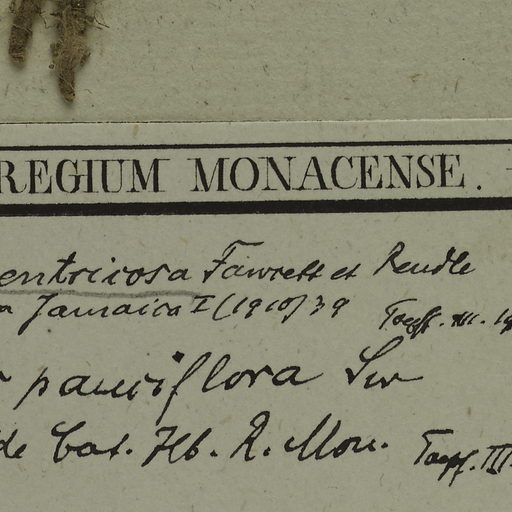 REGIUM MONACENSE.
entricosa Fawcett et Rendle
a Jamaica I (1910) 39 Toepff. III. 19
pauciflora Sw
de Cat. Hb. R. Mon. Toepf. III.